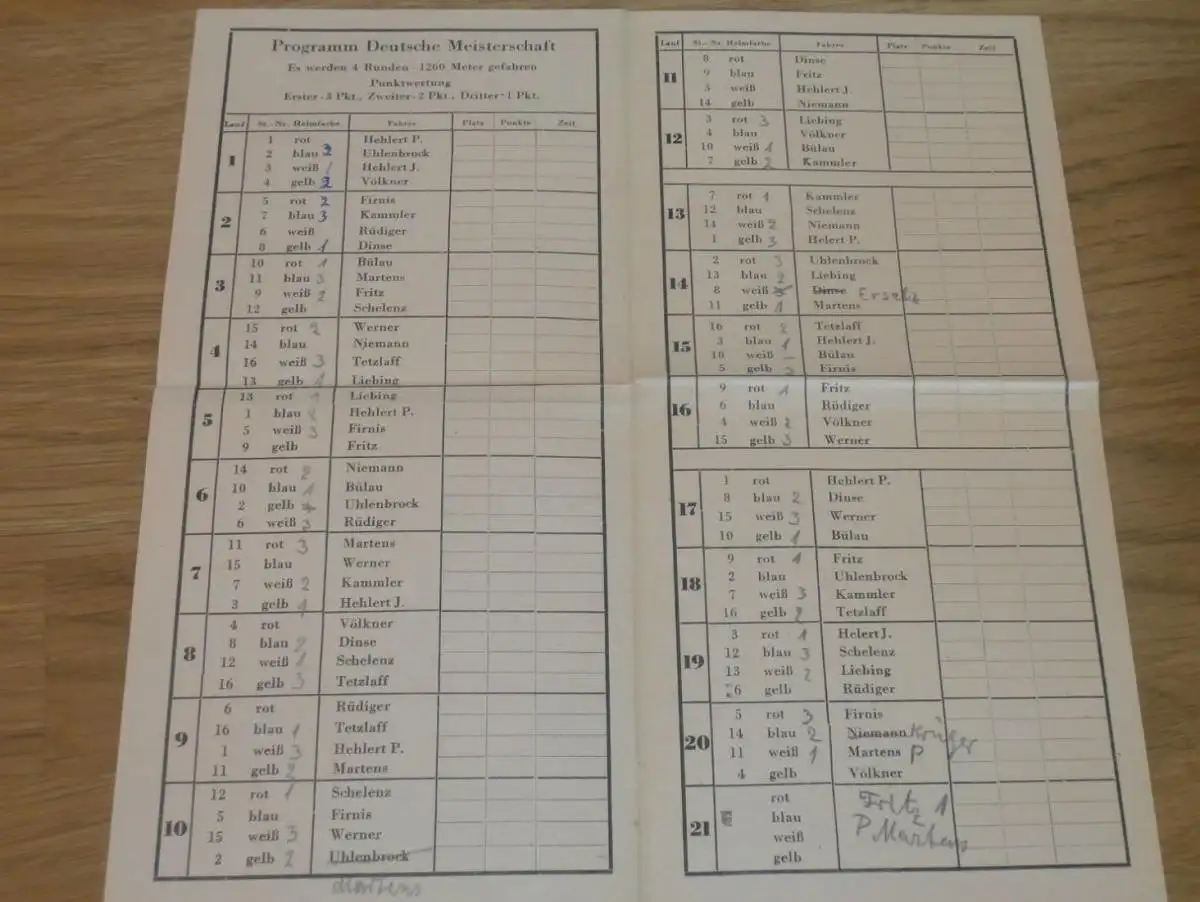 Programm Deutsche Meisterschaft
Es werden 4 Runden 1260 Meter gefahren
Punktwertung
Erster-3 Pkt., Zweiter-2 Pkt., Dritter-1 Pkt.
Lauf St.-Nr. Helmfarbe Fahrer Platz Punkte Zeit
1
1 rot Hehlert P.
2 blau 3 Uhlenbrock
3 weiß 1 Hehlert J.
4 gelb 2 Völkner
2
5 rot 2 Firnis
7 blau 3 Kammler
6 weiß Rüdiger
8 gelb 1 Dinse
3
10 rot 1 Bülau
11 blau 3 Martens
9 weiß 2 Fritz
12 gelb Schelenz
4
15 rot 2 Werner
14 blau Niemann
16 weiß 3 Tetzlaff
13 gelb 1 Liebing
5
13 rot 1 Liebing
1 blau 2 Hehlert P.
5 weiß 3 Firnis
9 gelb Fritz
6
14 rot 2 Niemann
10 blau 1 Bülau
2 gelb Uhlenbrock
6 weiß 3 Rüdiger
7
11 rot 3 Martens
15 blau Werner
7 weiß 2 Kammler
3 gelb 1 Hehlert J.
8
4 rot Völkner
8 blau 2 Dinse
12 weiß 1 Schelenz
16 gelb 3 Tetzlaff
9
6 rot Rüdiger
16 blau 1 Tetzlaff
1 weiß 3 Hehlert P.
11 gelb 2 Martens
10
12 rot 1 Schelenz
5 blau Firnis
15 weiß 3 Werner
2 gelb 2 Uhlenbrock
Martens
Lauf St.-Nr. Helmfarbe Fahrer Platz Punkte Zeit
11
8 rot Dinse
9 blau Fritz
3 weiß Hehlert J.
14 gelb Niemann
12
3 rot 3 Liebing
4 blau Völkner
10 weiß 1 Bülau
7 gelb 2 Kammler
13
7 rot 1 Kammler
12 blau Schelenz
14 weiß 2 Niemann
1 gelb 3 Helert P.
14
2 rot 3 Uhlenbrock
13 blau 2 Liebing
8 weiß Dinse Ersatz
11 gelb 1 Martens
15
16 rot 2 Tetzlaff
3 blau 1 Hehlert J.
10 weiß – Bülau
5 gelb 3 Firnis
16
9 rot 1 Fritz
6 blau Rüdiger
4 weiß 2 Völkner
15 gelb 3 Werner
17
1 rot Hehlert P.
8 blau 2 Dinse
15 weiß 3 Werner
10 gelb 1 Bülau
18
9 rot 1 Fritz
2 blau Uhlenbrock
7 weiß 3 Kammler
16 gelb 2 Tetzlaff
19
3 rot 1 Helert J.
12 blau 3 Schelenz
13 weiß 2 Liebing
6 gelb Rüdiger
20
5 rot 3 Firnis
14 blau 2 Niemann Krüger
11 weiß 1 Martens P
4 gelb Völkner
21
rot Fritz 1
blau P Martens
weiß
gelb